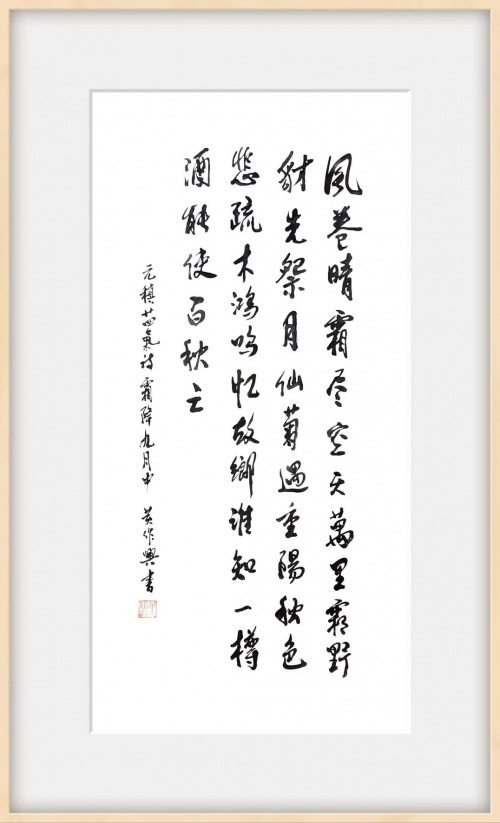 風卷晴霜尽空天萬里霜野
豺先祭月仙菊遇重陽秋色
悲疏木鴻鳴忆故鄉誰知一樽
酒能使百秋亡
元稹廿四氣詩霜降九月中 黄作興書